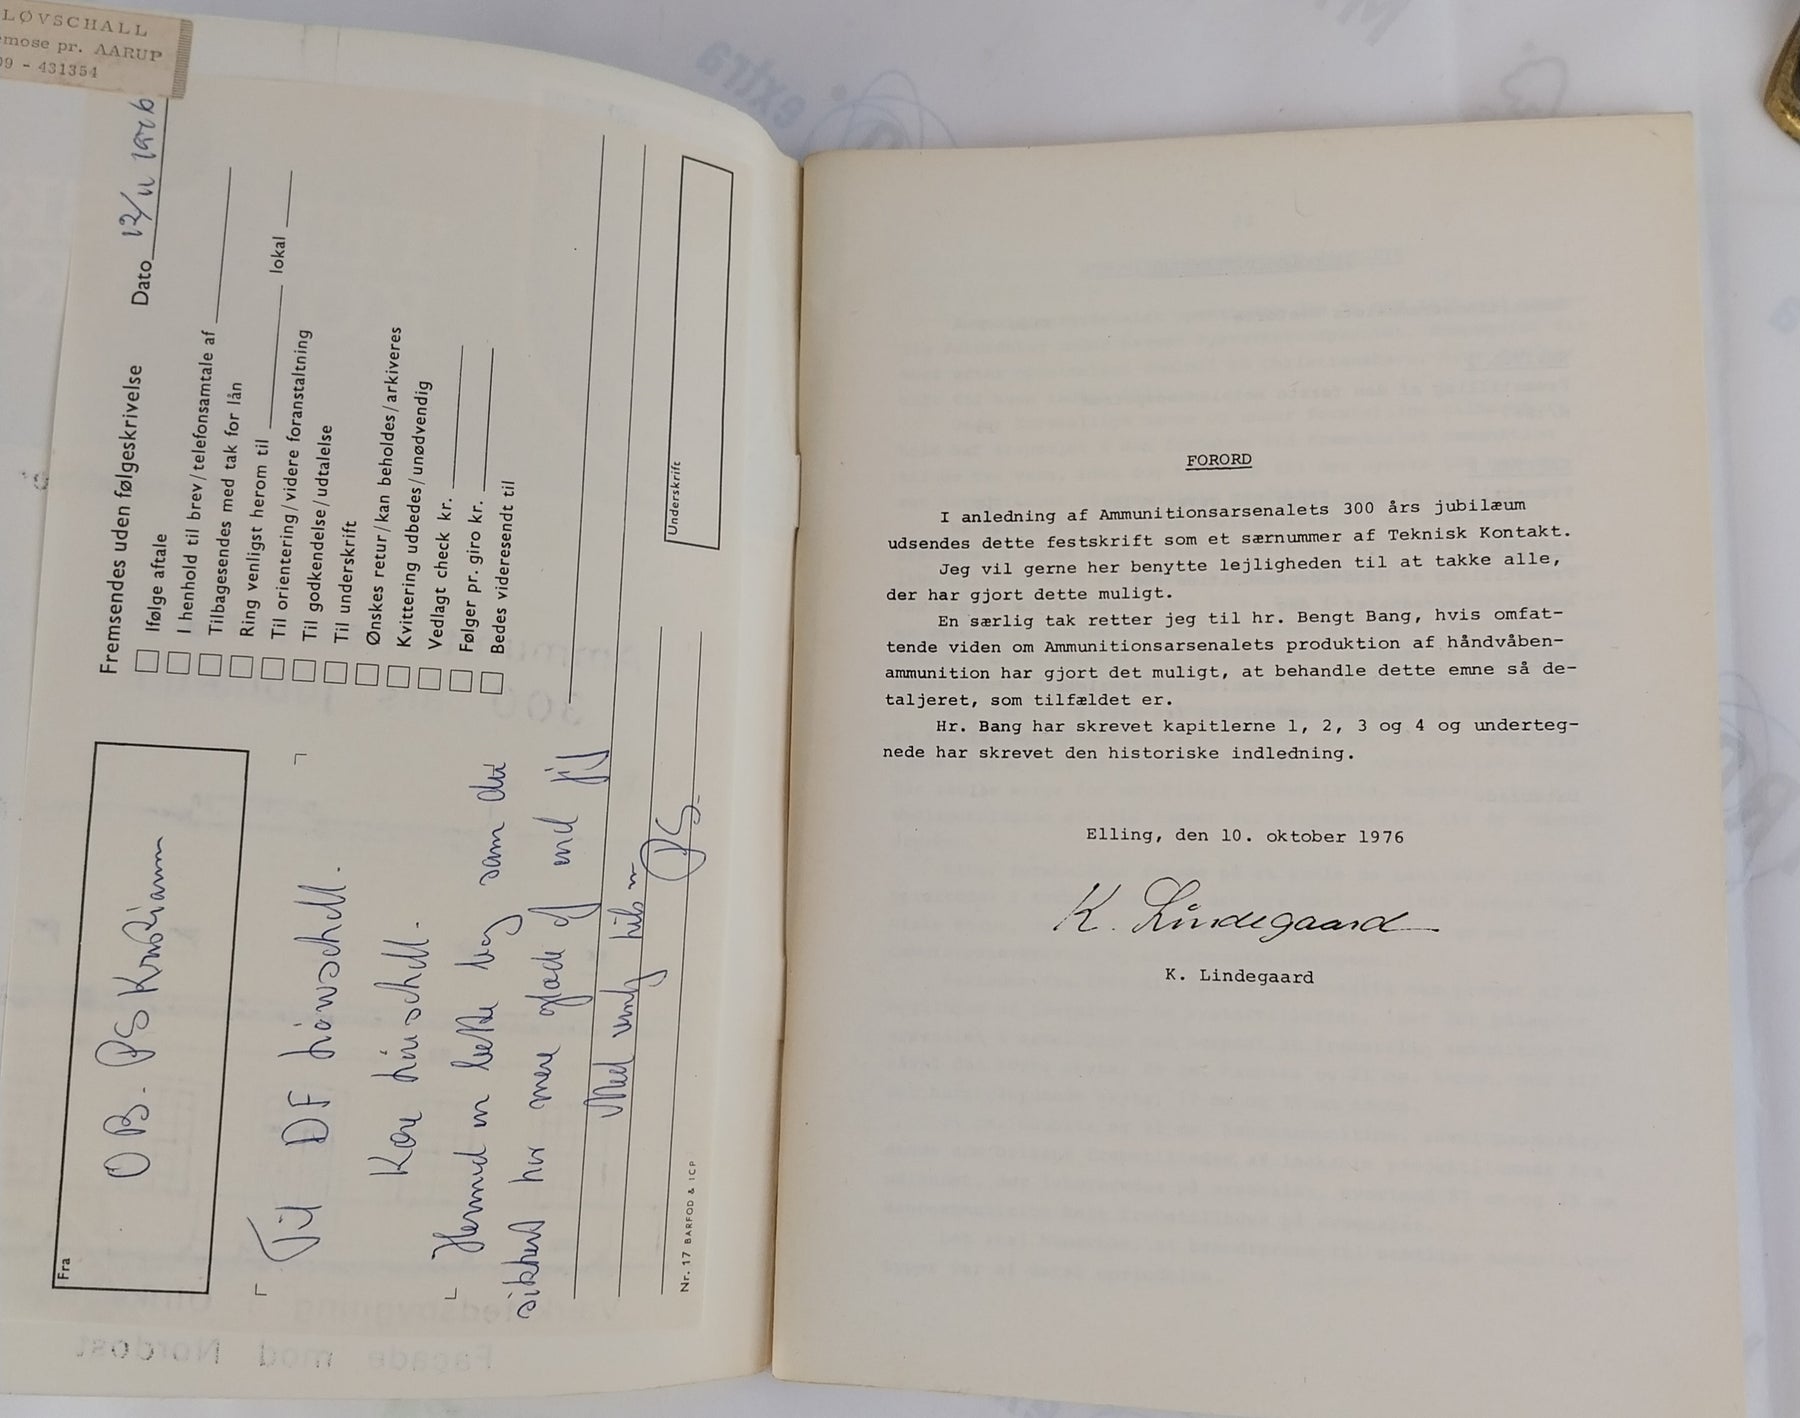 LØVSCHALL
pr. AARUP
09 - 431354
Fra
OB. PS Kristiansen
Til DF Løwschall.
Kære Løwschall.
Hermed en lille bog som du
sikkert har mere glæde af end jeg
Med venlig hilsen
PS
Fremsendes uden følgeskrivelse
Dato 12/11
Ifølge aftale
I henhold til brev/telefonsamtale af
Tilbagesendes med tak for lån
Ring venligst herom til lokal
Til orientering/videre foranstaltning
Til godkendelse/udtalelse
Til underskrift
Ønskes retur/kan beholdes/arkiveres
Kvittering udbedes/unødvendig
Vedlagt check kr.
Følger pr. giro kr.
Bedes videresendt til
Underskrift
Nr. 17 BARFOD & ICP
FORORD
I anledning af Ammunitionsarsenalets 300 års jubilæum
udsendes dette festskrift som et særnummer af Teknisk Kontakt.
Jeg vil gerne her benytte lejligheden til at takke alle,
der har gjort dette muligt.
En særlig tak retter jeg til hr. Bengt Bang, hvis omfat-
tende viden om Ammunitionsarsenalets produktion af håndvåben-
ammunition har gjort det muligt, at behandle dette emne så de-
taljeret, som tilfældet er.
Hr. Bang har skrevet kapitlerne 1, 2, 3 og 4 og underteg-
nede har skrevet den historiske indledning.
Elling, den 10. oktober 1976
K. Lindegaard
K. Lindegaard
extra